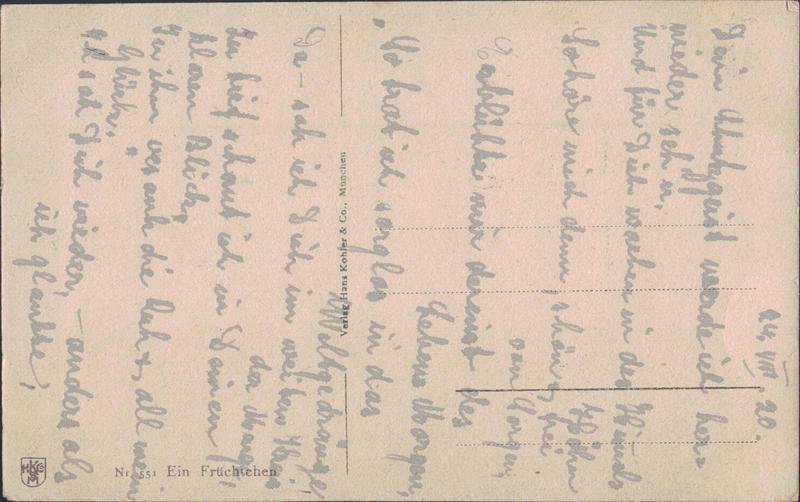 24. VIII. 20.
Dein Schutzgeist werde ich her=
nieder sehn,
Und für Dich wachen in des
Höhn
So höre mich denn, schön, frei
von Sorgen
Erblühte mir dereinst des
Lebens Morgen,
So trat ich sorglos in das
Weltgedränge,
Da – sah ich Dich im weiten
der Menge,
Zu tief schaut ich in Deinen
klaren Blick,
In ihm versank die Ruh, all mein
Glück.
Ich sah Dich wieder, – anders als
ich glaubte,
Verlag Hans Kohler & Co., München
Nr. 551 Ein Früchtchen